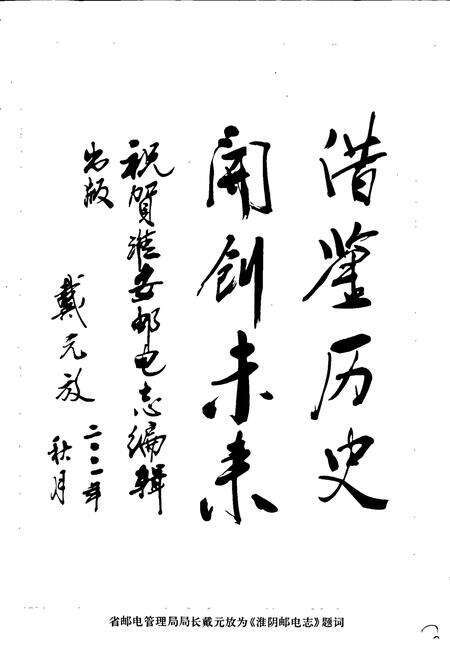 借鉴历史
開创未来
祝贺淮安邮电志编辑
出版
戴元放
二〇〇一年
秋月
省邮电管理局局长戴元放为《淮阴邮电志》题词